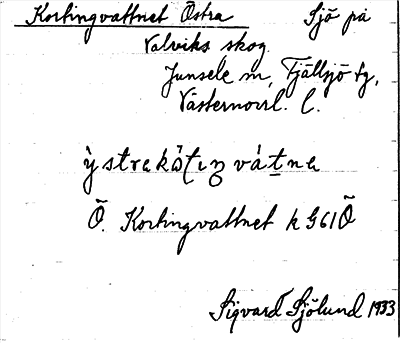 Kortingvattnet Östra Sjö på
Valviks skog
Junsele sn, Fjällsjö tg,
Västernorrl. l.
ỳstrekö̀tıŋvátne
Ö. Kortingvattnet k G61 Ö
Sigvard Sjölund 1933